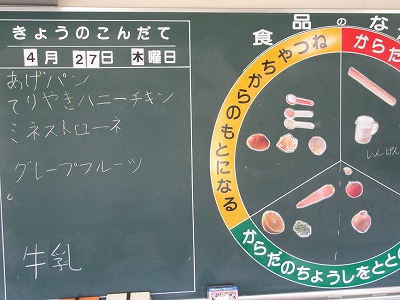 きょうのこんだて
4月 27日 木曜日
あげパン
てりやきハニーチキン
ミネストローネ
グレープフルーツ
牛乳
食品のな
ねつやちからのもとになる
からだ
からだのちょうしをととの
いんげん